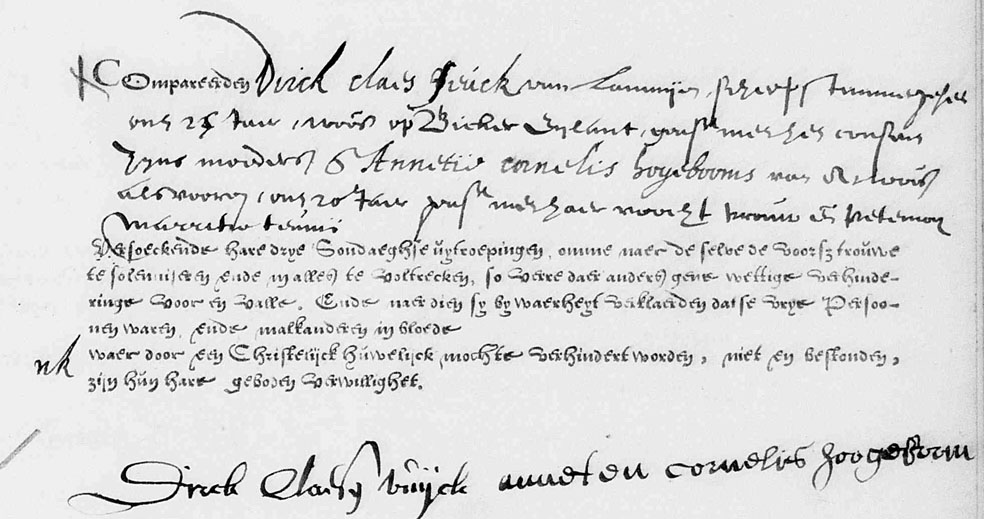 Compareerden Dirck Claes van scheeps timmergesel
out 25 Jaer, woont op Bicker Eylant, geast. met het consent
zijns moeders & Annetie Cornelis hogebooms van A. woont
als vooren, out 20 Jaer geast. met haer
Marritie teunis
Versoeckende hare drye Sondaeghse uytroepingen, omme naer de selve de voorsz trouwe
te solemniseren ende in alles te voltrecken, so verre daer anders gene wettige verhinde-
ringe voor en valle. Ende naer dien sy by waerheyt verklaerden dat se vrye Persoo-
nen waren, ende malkanderen in bloede
waer door een Christelijck huwelijck mochte verhindert worden, niet en bestonden,
zijn hun hare geboden verwillighet.
nk
Dirck Claesz anneten cornelis hoogeboom